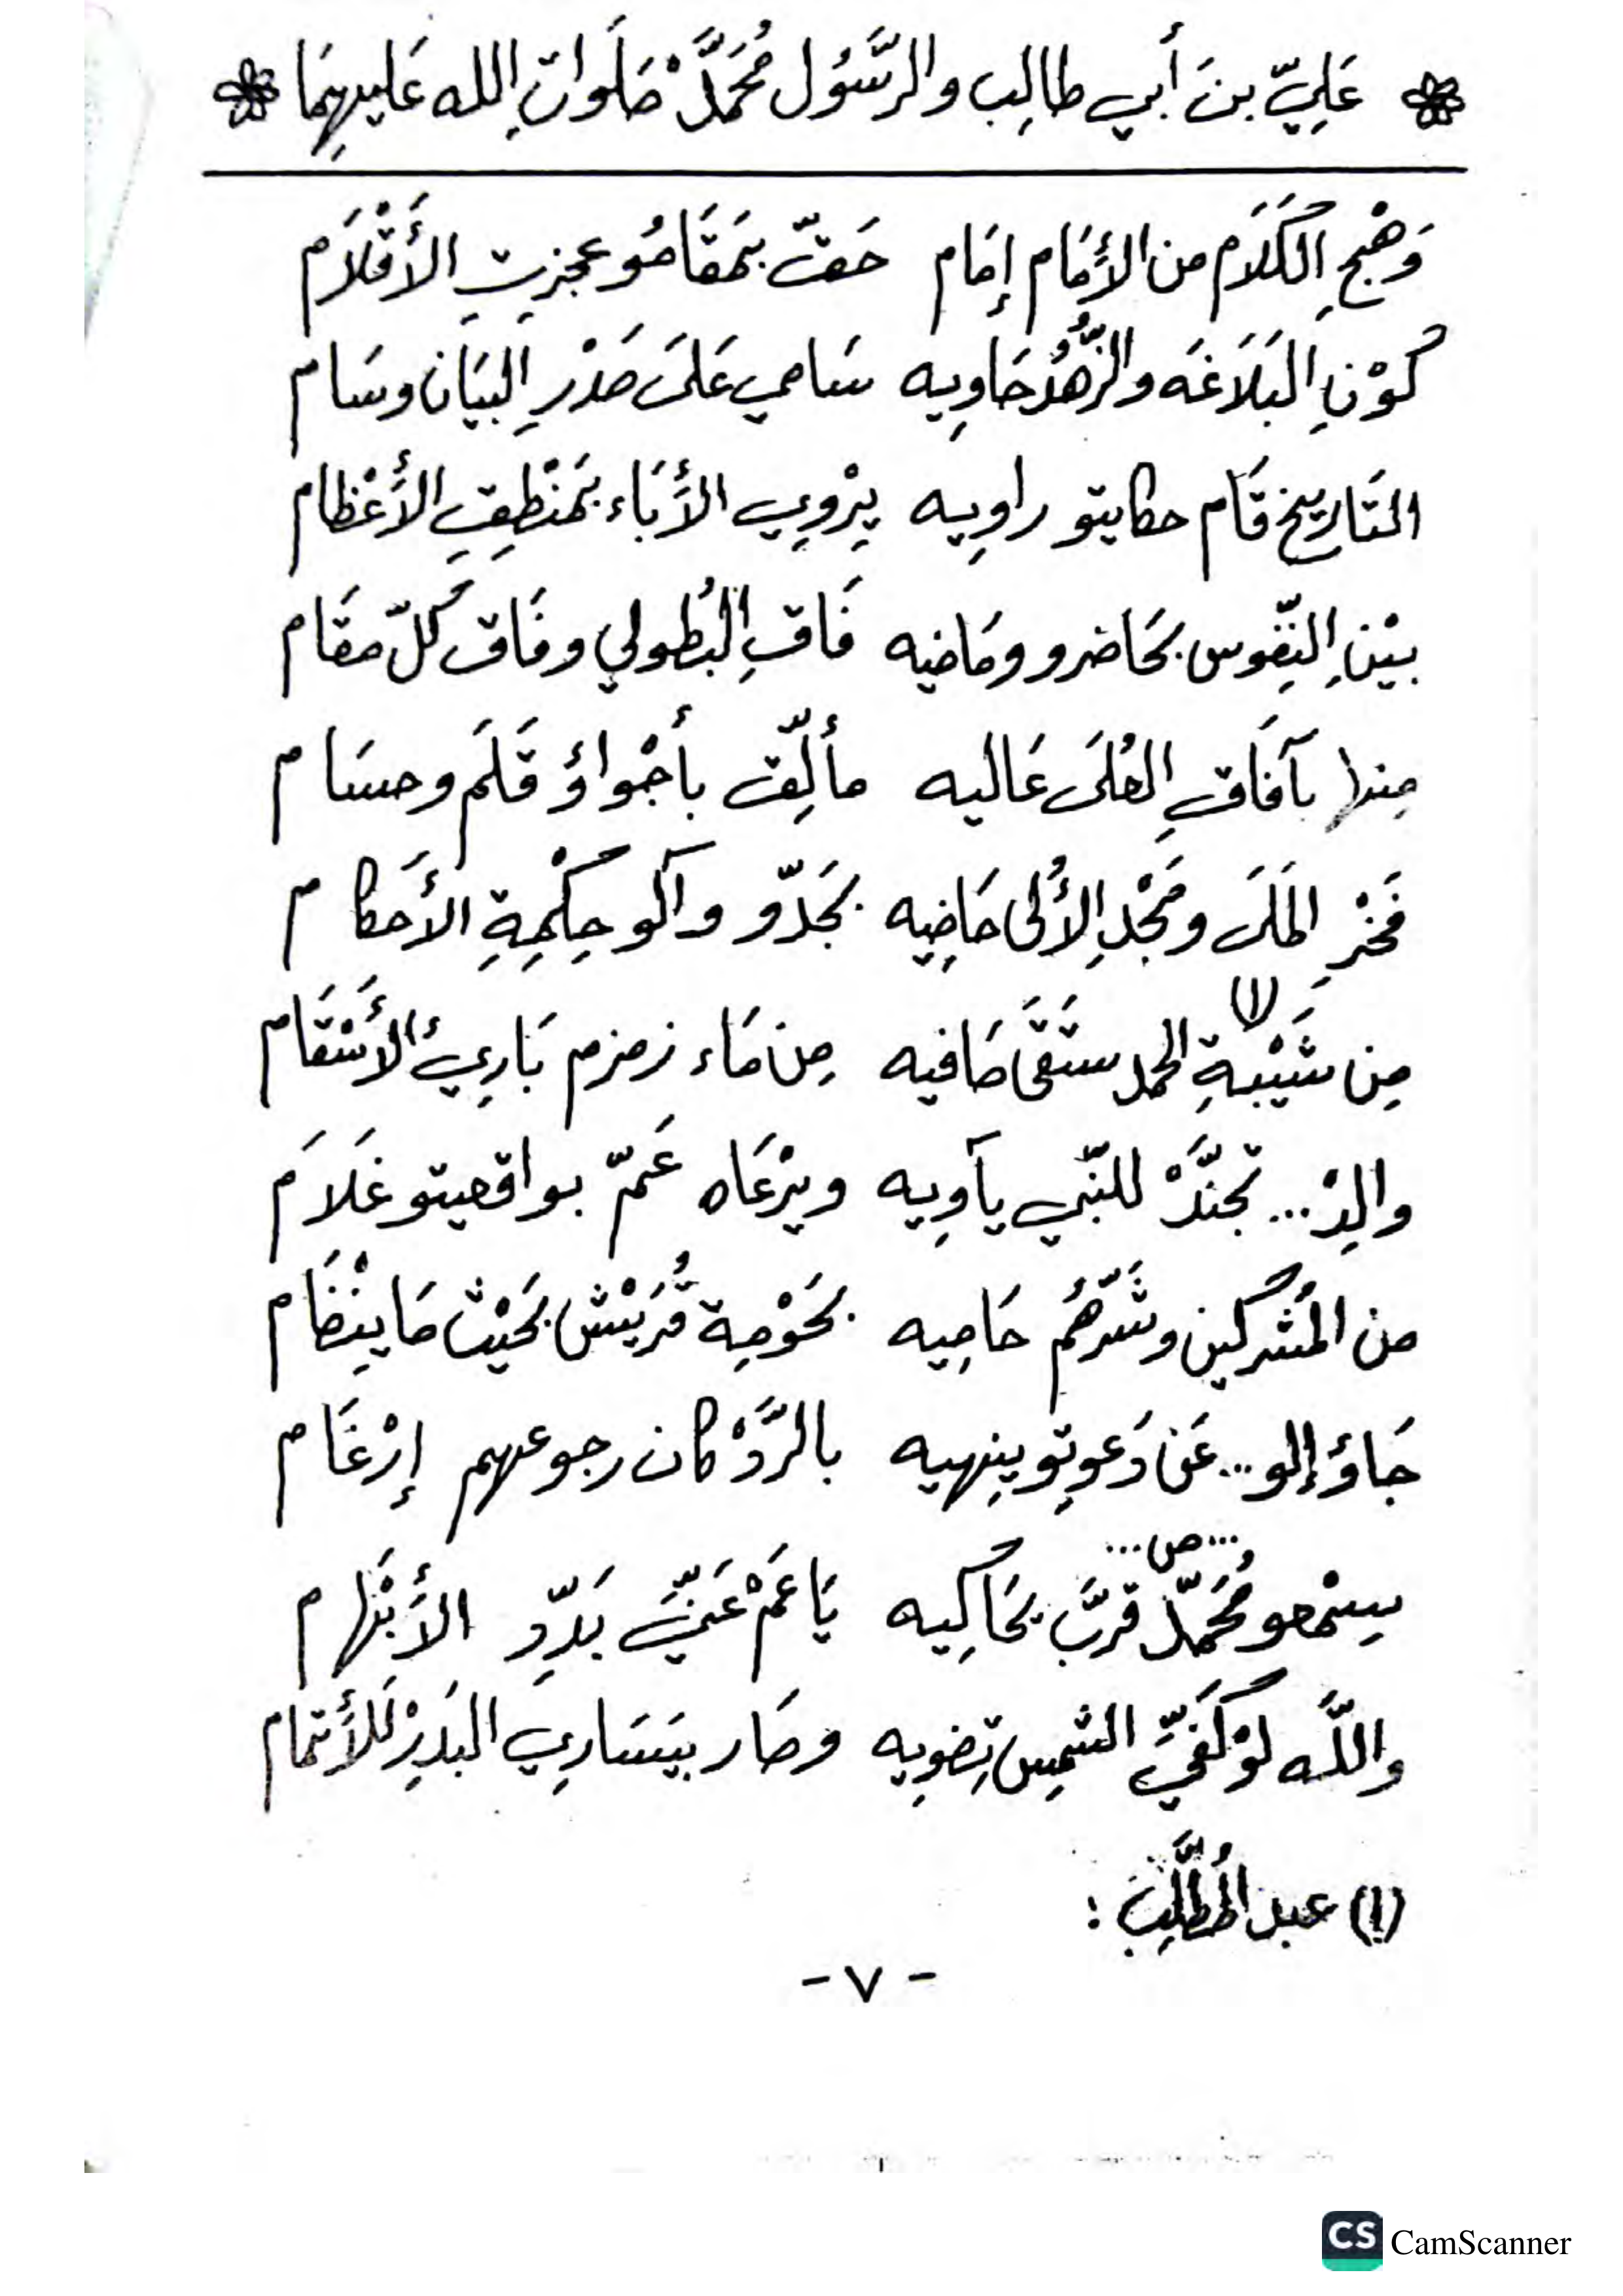 عَلِيّ بنَ أبي طالِب والرَّسُول مُحَمَّدْ صَلَواتِ الله عَليهِمَا
وَهْجِ الكَلَام من الأَمَام إمَام حَقّ بمَقَامُو عجزِتِ الأَقْلَام
كَوْنِ البَلَاغَه والزُّهُد حَاوِيه سَامي عَلَى صَدْرِ البَيَان وسَام
التَاريخ قَام حكايتو راوِيه يِرْوِي الأَبَاء بمَنْطِقِ الأَعْظام
بيْنِ النِفّوس بحَاضرو ومَاضيه فَاقِ البُطولي وفَاق كلّ مقَام
مِنها بآفَاقِ العُلَى عَاليه مألّق بأجْواؤ قَلَم وحسَام
فَخْرِ المَلَى ومَجْدِ الأُلى حَاضِيه بجَدّو وآلو حِكْمِةِ الأَحكام
مِن شَيْبةِ الحمد (١) ستَقَى صَافيه مِن مَاء زمزم بَارِئ الأَسْقَام
والِدْ... تجنَّدْ للنّبي يآوِيه ويرْعَاه عَمّ بواقعيتو غَلَامَ
من المُشركين وشَرّهُم حَامِيه بحَوْمِة قُرَيْش بحَيْث مَا ينْضَام
جَاؤ إلو... عَن دَعوتِو ينِهيه بالرَّدْ كان رجوعهم إرْغَام
سِمْعو مُحَمّد ...ص... قرَّب يحَاكِيه يَا عَمْ عَنّي بَدّدِ الأَبْهام
واللَّه لوْ كَفّي الشمِس تِضوِيه وصَار بيَسَارِي البَدِرْ للأَتمام
(١) عبد المُطَّلِب :
- ٧ -
CS CamScanner